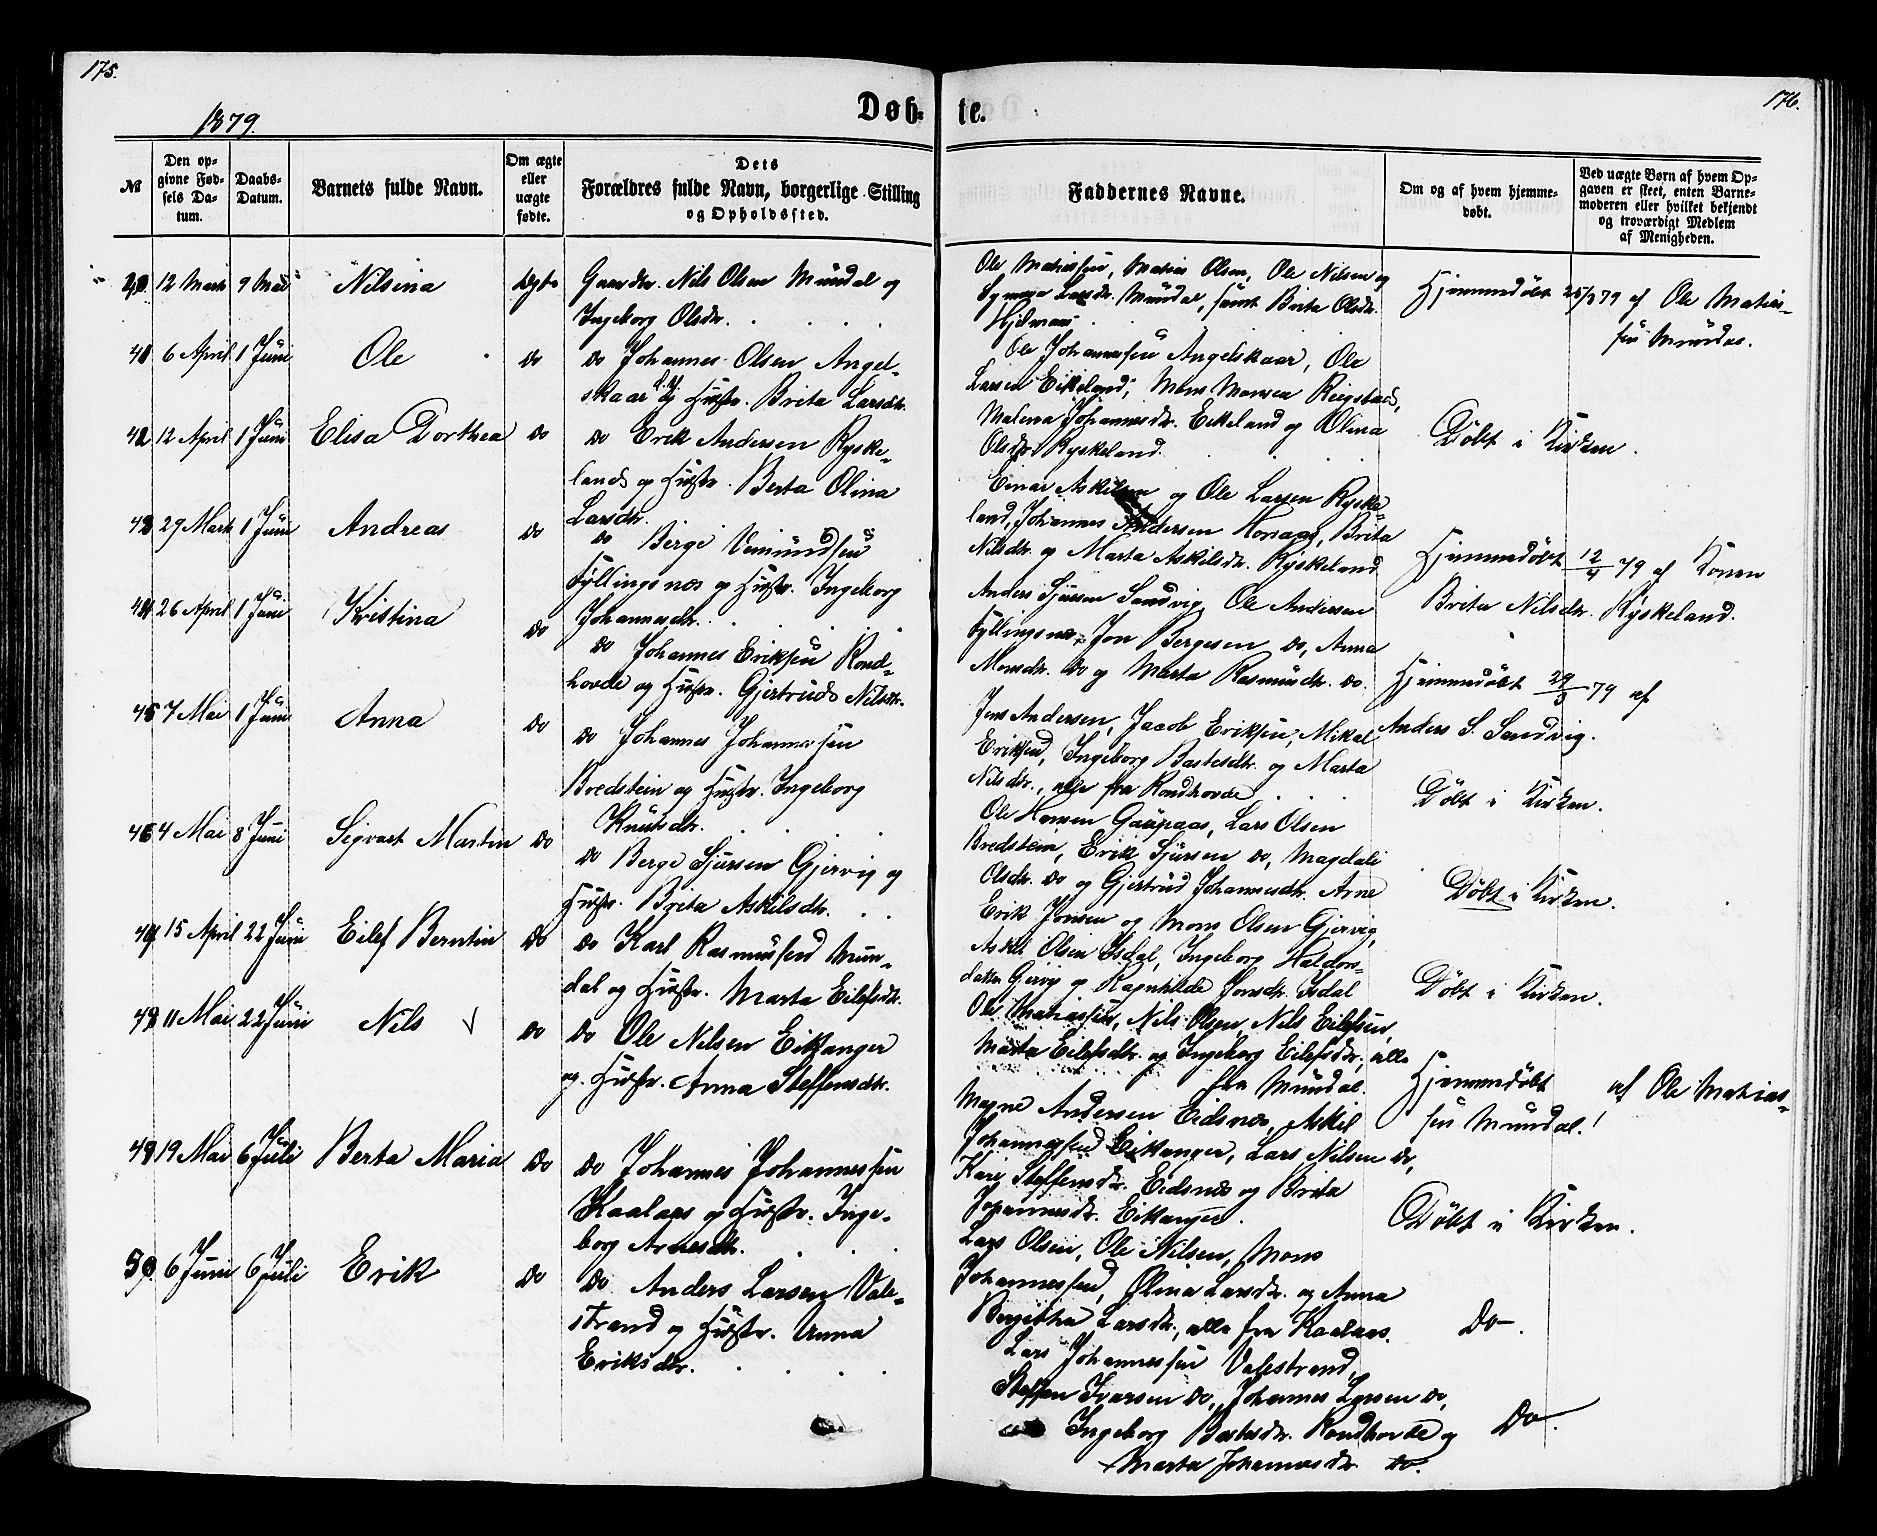 175.
176.
1879.
Døb- te.
№
Den op-
givne Fød-
sels Da-
tum.
Daabs-
Datum.
Barnets fulde Navn.
Om ægte
eller
uægte
fødte.
Dets
Forældres fulde Navn, borgerlige Stilling
og Opholdssted.
Faddernes Navne.
Om og af hvem hjemme-
døbt.
Ved uægte Børn af hvem Op-
gaven er skeet, enten Barne-
moderen eller hvilket bekjendt
og troværdigt Medlem
af Menigheden.
12 Marts 9 Mai Nilsina Ægte Gaardbr. Nils Olsen Mundal og
Ingeborg Olsdtr.
Ole Matiassen, Matias Olsen, Ole Nilsen og
Larsdtr. Mundal, samt Brita Olsdtr.
Hjelmaas
Hjemmedøbt 25/3 79 af Ole Matias-
sen Mundal.
6 April 1 Juni Ole do do Johannes Olsen Angel-
skaar og Hustr. Brita Larsdtr.
Ole Johannessen Angelskaar, Ole
Larsen Eikeland, Mons Monsen Rugstad,
Malena Johannesdtr. Eikeland og Olina
Olsdtr. Ryskeland.
Døbt i Kirken.
12 April 1 Juni Elisa Dorthea do do Erik Andersen Ryske-
land og Hustr. Berta Olina
Larsdtr.
Einar Askilsen og Ole Larsen Ryske-
land, Johannes Andersen Honaas, Brita
Nilsdtr. og Marta Askilsdtr. Ryskeland
Hjemmedøbt 12/4 79 af Konen
Brita Nilsdtr. Ryskeland.
29 Marts 1 Juni Andreas do do Berge Vemundsen
Fyllingsnes og Hustr. Ingeborg
Johannesdtr.
Anders Sjursen Sandvig, Ole Andersen
Fyllingsnes, Jon Bergesen do, Anna
Monsdtr. do og Marta Rasmusdtr. do.
Hjemmedøbt 29/3 79 af
Anders S. Sandvig.
26 April 1 Juni Kristina do do Johannes Eriksen Rond-
hovde og Hustr. Gjertrud Nilsdtr.
Jens Andersen, Jacob Eriksen, Mikal
Eriksen, Ingeborg Bastesdtr. og Marta
Nilsdtr., alle fra Rondhovde
Døbt i Kirken.
7 Mai 1 Juni Anna do do Johannes Johannessen
Bredstein og Hustr. Ingeborg
Knutsdtr.
Ole Hansen Gaupaas, Lars Olsen
Bredstein, Erik Sjursen do, Magdali
Olsdtr. do og Gjertrud Johannesdtr. Arne
Døbt i Kirken.
4 Mai 8 Juni Sigvart Martin do do Berge Sjursen Gjervig og
Hustr. Brita Askilsdtr.
Erik Jonsen og Mons Olsen Gjervig,
Askil Olsen Isdal, Ingeborg Haldors-
datter Gjervig og Ragnhilde Jonsdtr. Isdal
Døbt i Kirken.
15 April 22 Juni Eilef Berntin do do Karl Rasmussen Mun-
dal og Hustr. Marta Eilefsdtr.
Ole Matiassen, Nils Olsen, Nils Eilefsen,
Marta Eilefsdtr. og Ingeborg Eilefsdtr., alle
fra Mundal.
Hjemmedøbt af Ole Matias-
sen Mundal!
11 Mai 22 Juni Nils do do Ole Nilsen Eikanger
og Hustr. Anna Steffensdtr.
Magne Andersen Eidsnes, Askil
Johannessen Eikanger, Lars Nilsen do,
Kari Steffensdtr. Eidsnes og Brita
Johannesdtr. Eikanger.
Døbt i Kirken.
19 Mai 6 Juli Berta Maria do do Johannes Johannessen
Kaalaas og Hustr. Inge-
borg Arnesdtr.
Lars Olsen, Ole Nilsen, Mons
Johannessen, Olina Larsdtr. og Anna
Bergitha Larsdtr., alle fra Kaalaas.
Do.
50 6 Juni 6 Juli Erik do do Anders Larsen Vale-
strand og Hustr. Anna
Eriksdtr.
Lars Johannessen Valestrand,
Steffen Ivarsen do, Johannes Larsen do,
Ingeborg Bastesdtr. Rondhovde og
Marta Johannesdtr. do.
Do.